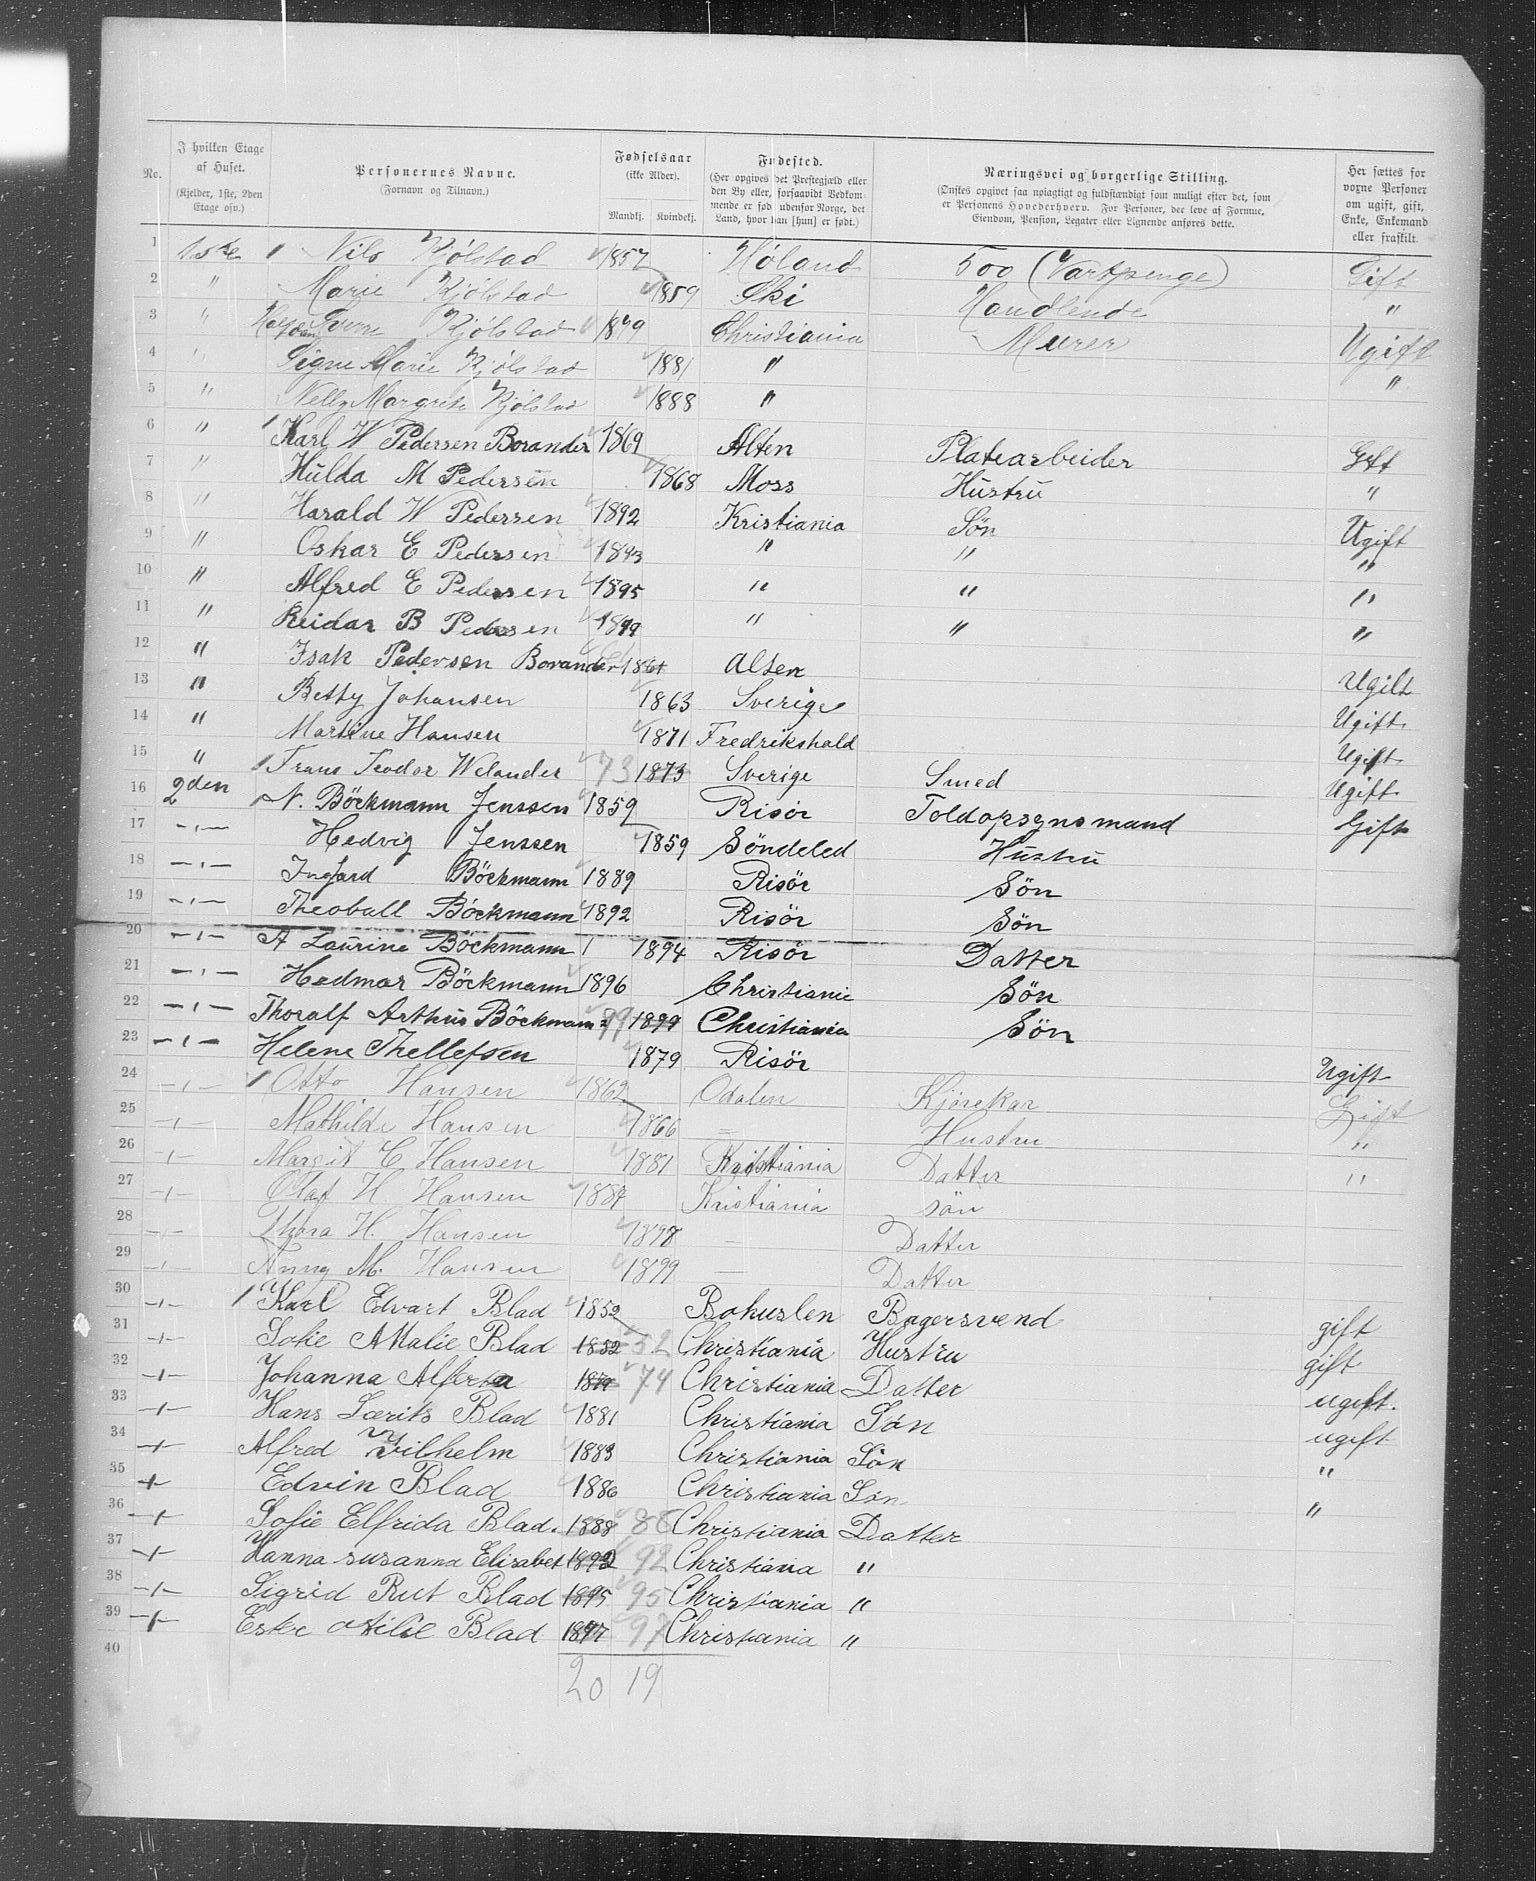 No. | I hvilken Etage af Huset. (Kjelder, 1ste, 2den Etage osv.) | Personernes Navne. (Fornavn og Tilnavn.) | Fødselsaar (ikke Alder). Mandkj. Kvindekj. | Fødested. (Her opgives det Prestegjæld eller den By eller, forsaavidt Vedkommende er fød udenfor Norge, det Land, hvor han [hun] er født.) | Næringsvei og borgerlige Stilling. (Ønskes opgivet saa nøiagtigt og fuldstændigt som muligt efter det, som er Personens Hovederhverv. For Personer, der leve af Formue, Eiendom, Pension, Legater eller Lignende anføres dette. | Her sættes for voxne Personer om ugift, gift, Enke, Enkemand eller fraskilt.
1 1ste Nils Kjölstad 1857 Höland 500 (Vartpenge) Gift
2 " Marie Kjölstad 1859 Ski Handlende "
3 " Halfdan Sverre Kjölstad 1879 Christiania Murer Ugift
4 " Signe Marie Kjölstad 1881 " "
5 " Nelly Margrete Kjölstad 1888 "
6 " Karl W Pedersen Borander 1869 Alten Platearbeider Gift
7 " Hulda M Pedersen 1868 Moss Hustru "
8 " Harald W Pedersen 1892 Kristiania Søn Ugift
9 " Oskar E Pedersen 1893 " " "
10 " Alfred E Pedersen 1895 " " "
11 " Reidar B Pedersen 1899 " " "
12 " Isak Pedersen Borander 1861 Alten Ugift
13 " Betty Johansen 1863 Sverige Ugift
14 " Martine Hansen 1871 Fredrikshald Ugift
15 " Frans Teodor Welander 73 1873 Sverige Smed Ugift
16 2den N. Böckmann Jenssen 1859 Risör Toldopsynsmand Gift
17 -"- Hedvig Jenssen 1859 Söndeled Hustru
18 -"- Ingfard Böckmann 1889 Risör Sön
19 -"- Theoball Böckmann 1892 Risör Sön
20 -"- A Laurine Böckmann 1894 Risör Datter
21 -"- Hedmar Böckmann 1896 Christiania Sön
22 -"- Thoralf Arthur Böckmann 99 1899 Christiania Sön
23 -"- Helene Thellefsen 1879 Risör Ugift
24 -"- Otto Hansen 1862 Odalen Kjörekar Gift
25 -"- Mathilde Hansen 1866 — Hustru "
26 -"- Margit C Hansen 1881 Kristiania Datter "
27 -"- Olaf H Hansen 1884 Kristiania sön
28 -"- Thora H. Hansen 1898 — Datter
29 -"- Anny M. Hansen 1899 — Datter
30 -"- Karl Edvart Blad 1852 Bohuslen Bagersvend gift
31 -"- Sofie Amalie Blad 1852 52 Christiania Hustru gift
32 -"- Johanna Alfrida 1874 74 Christiania Datter ugift.
33 -"- Hans Lærits Blad 1881 Christiania Sön ugift
34 -"- Alfred Vilhelm 1883 Christiania Sön "
35 -"- Edvin Blad 1886 Christiania Sön "
36 -"- Sofie Elfrida Blad. 1888 88 Christiania Datter
37 -"- Hanna susanna Elisabet 1892 92 Christiania "
38 -"- Sigrid Rut Blad 1895 95 Christiania "
39 -"- Blad 1897 97 Christiania "
40
20 19